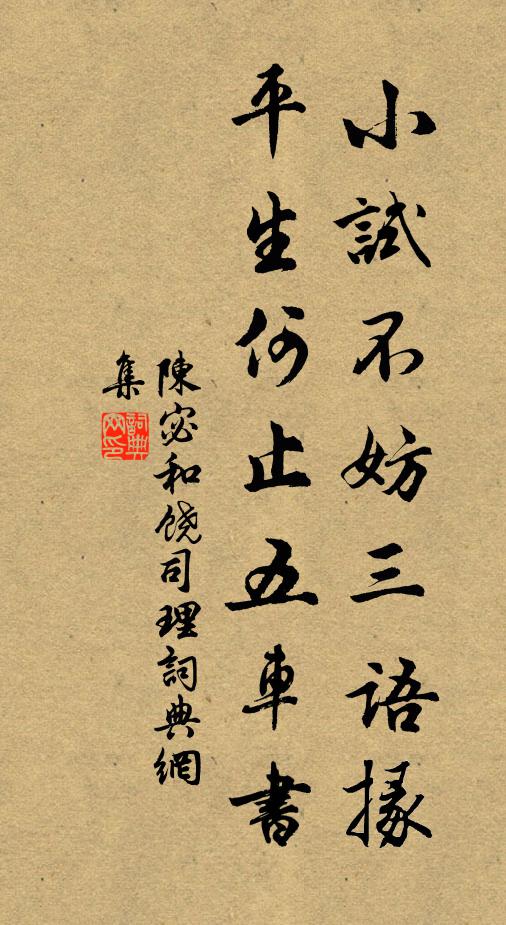 小試不妨三語掾
平生何止五車書
陳宓和饒司理詞典網
集
詞典网印